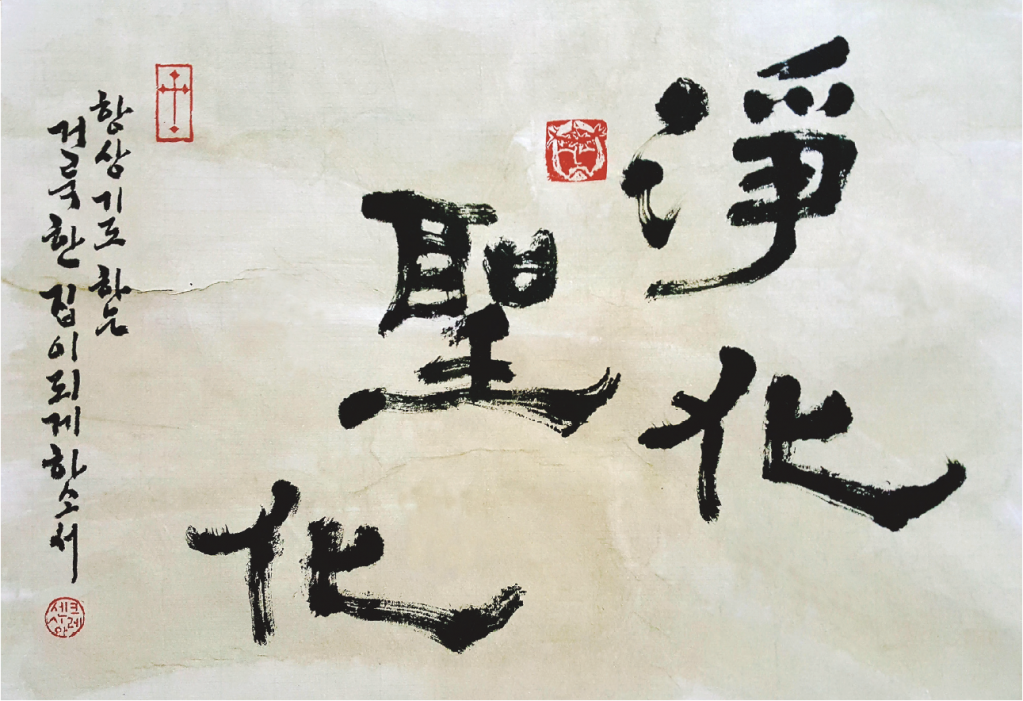 淨化
聖化
항상기도 하는
거룩한 집이되게하소서